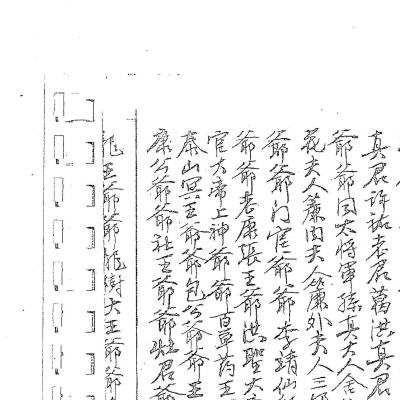 真君許祜老君葛洪真君
爺爺周大將軍孫真大人
花夫人簾内夫人簾外夫人三
爺爺門官爺爺李靖仙
爺爺老康張王爺洪聖大
官大帝上神爺爺百草药王
泰山冥王爺爺包公爺爺王
康公爺爺社王爺爺灶君爺
龍王爺爺龍樹大王爺爺